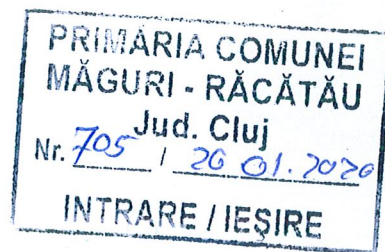 PRIMĂRIA COMUNEI
MĂGURI - RĂCĂTĂU
Jud. Cluj
Nr. 705 / 20 01. 2020
INTRARE / IEŞIRE